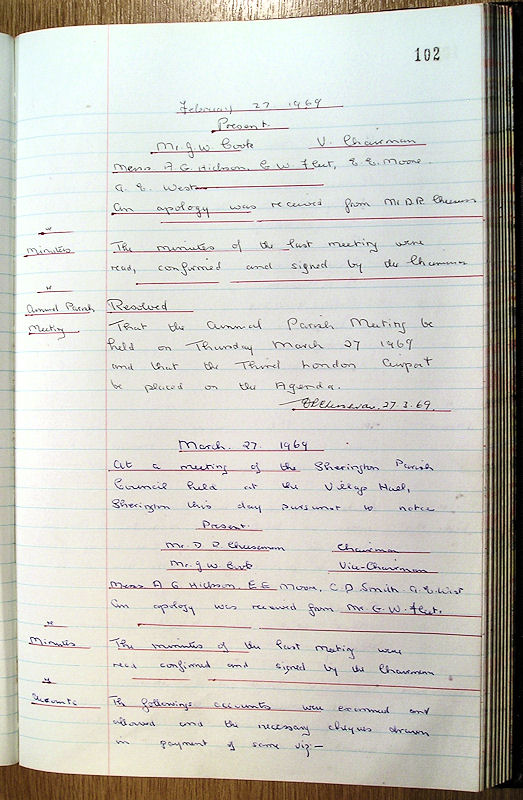 102
February 27 1969
Present.
Mr. G. W. Cook V. Chairman
Messrs A G. Hickson, G W. Fleet, E. E. Moore
A. E. West
An apology was received from Mr D R Cheeseman
Minutes The minutes of the last meeting were
read, confirmed and signed by the Chairman
Annual Parish Resolved
Meeting That the Annual Parish Meeting be
held on Thursday March 27 1969
and that the Third London Airport
be placed on the Agenda.
27.3.69.
March. 27. 1969
At a meeting of the Sherington Parish
Council held at the Village Hall,
Sherington this day pursuant to notice
Present.
Mr. D R Cheeseman Chairman
Mr. G W. Cook Vice-Chairman
Messrs A G Hickson, E E Moore, C. D. Smith A. E. West
An apology was received from Mr. G. W. Fleet.
Minutes The minutes of the last meeting were
read confirmed and signed by the Chairman
Accounts The followings accounts were examined and
allowed and the necessary cheques drawn
in payment of same viz:-